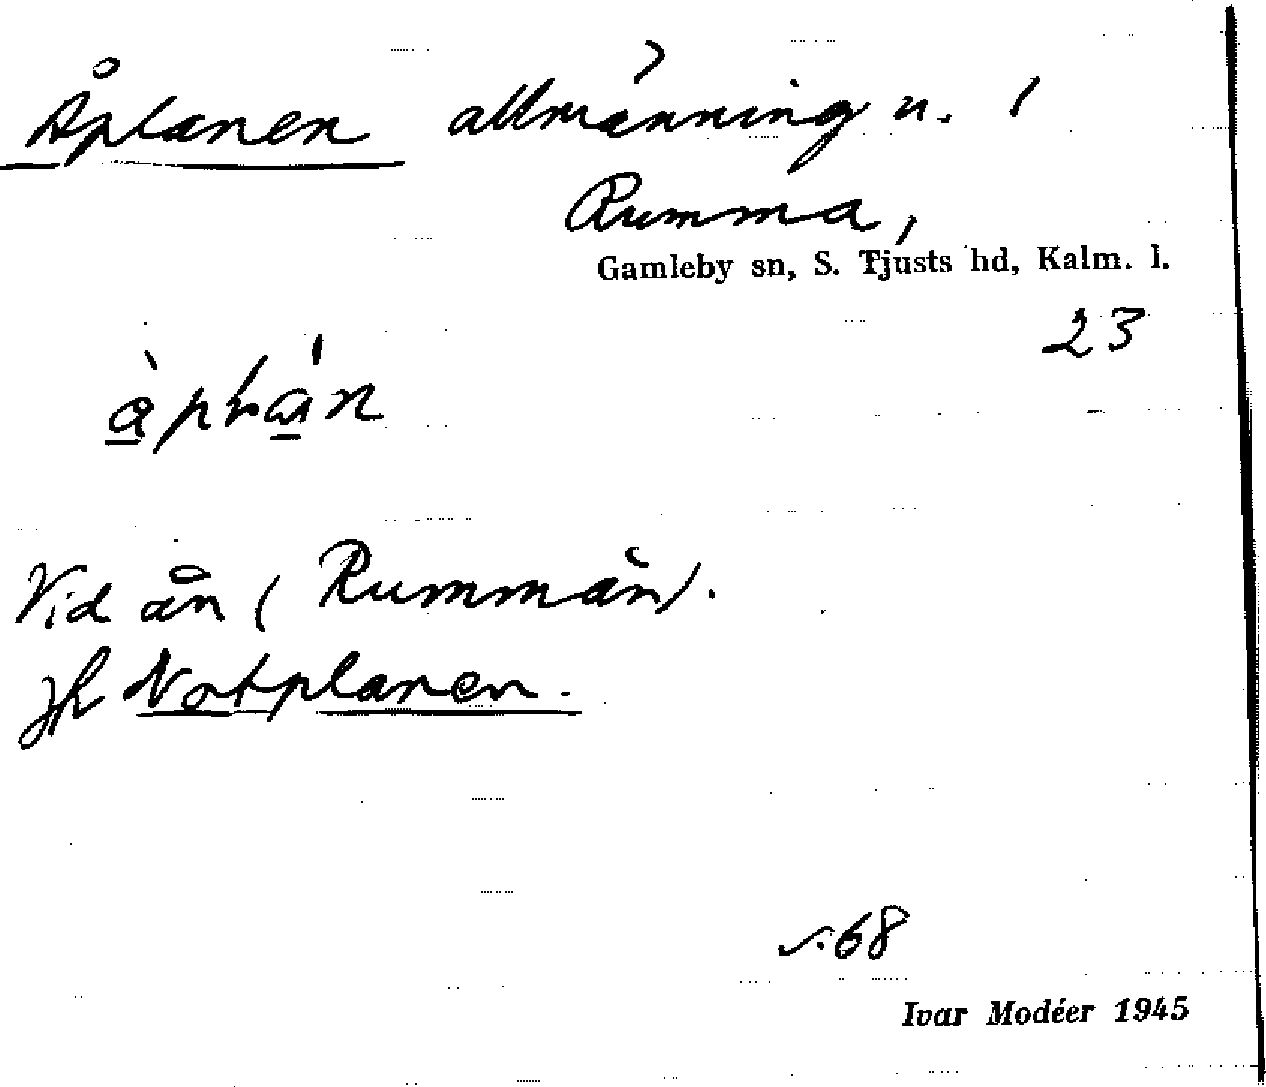 Åplanen allmänning u. /
Rumma,
Gamleby sn, S. Tjusts hd, Kalm. l.
23
Vid ån (Rummån).
jfr Notplanen.
s. 68
Ivar Modéer 1945